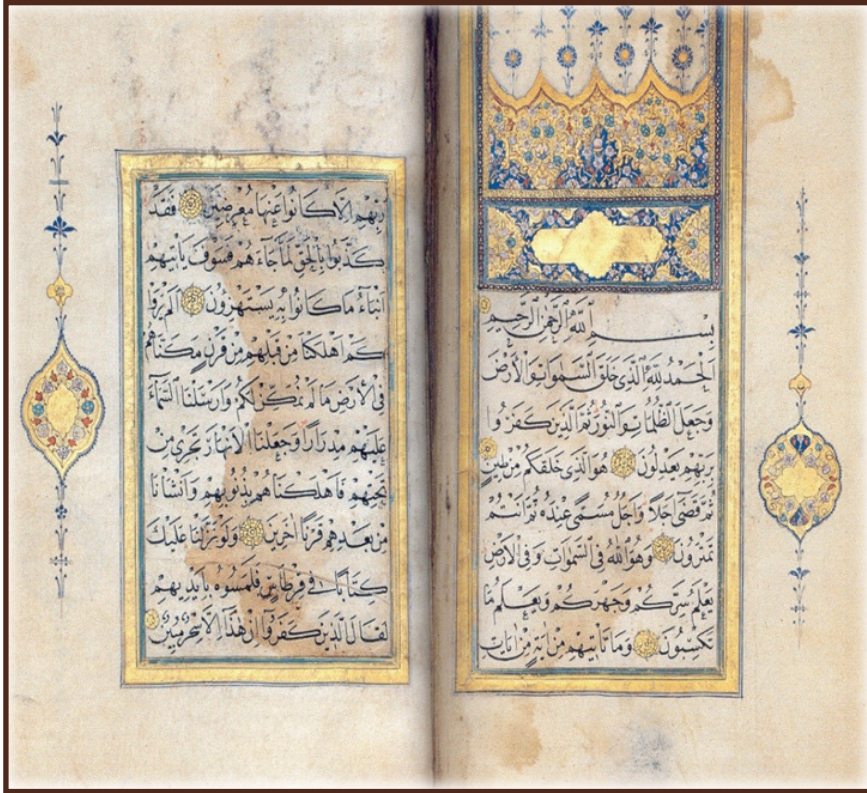 بِسْمِ ٱللَّهِ ٱلرَّحْمٰنِ ٱلرَّحِيمِ
اَلْحَمْدُ لِلَّهِ ٱلَّذِى خَلَقَ ٱلسَّمٰوَاتِ وَٱلْاَرْضَ
وَجَعَلَ ٱلظُّلُمَاتِ وَٱلنُّورَ ثُمَّ ٱلَّذِينَ كَفَرُوا
بِرَبِّهِمْ يَعْدِلُونَ هُوَ ٱلَّذِى خَلَقَكُمْ مِنْ طِينٍ
ثُمَّ قَضٰٓى اَجَلًا وَاَجَلٌ مُسَمًّى عِنْدَهُ ثُمَّ اَنْتُمْ
تَمْتَرُونَ وَهُوَ ٱللَّهُ فِى ٱلسَّمٰوَاتِ وَفِى ٱلْاَرْضِ
يَعْلَمُ سِرَّكُمْ وَجَهْرَكُمْ وَيَعْلَمُ مَا
تَكْسِبُونَ وَمَا تَاْتِيهِمْ مِنْ اٰيَةٍ مِنْ اٰيَاتِ
رَبِّهِمْ اِلَّا كَانُوا عَنْهَا مُعْرِضِينَ فَقَدْ
كَذَّبُوا بِالْحَقِّ لَمَّا جَآءَهُمْ فَسَوْفَ يَاْتِيهِمْ
اَنْبَآءُ مَا كَانُوا بِهِ يَسْتَهْزِؤُنَ اَلَمْ يَرَوْا
كَمْ اَهْلَكْنَا مِنْ قَبْلِهِمْ مِنْ قَرْنٍ مَكَّنَّاهُمْ
فِى ٱلْاَرْضِ مَا لَمْ نُمَكِّنْ لَكُمْ وَاَرْسَلْنَا ٱلسَّمَآءَ
عَلَيْهِمْ مِدْرَارًا وَجَعَلْنَا ٱلْاَنْهَارَ تَجْرِى مِنْ
تَحْتِهِمْ فَاَهْلَكْنَاهُمْ بِذُنُوبِهِمْ وَاَنْشَاْنَا
مِنْ بَعْدِهِمْ قَرْنًا اٰخَرِينَ وَلَوْ نَزَّلْنَا عَلَيْكَ
كِتَابًا فِى قِرْطَاسٍ فَلَمَسُوهُ بِاَيْدِيهِمْ
لَقَالَ ٱلَّذِينَ كَفَرُوٓا اِنْ هٰذَٓا اِلَّا سِحْرٌ مُبِينٌ